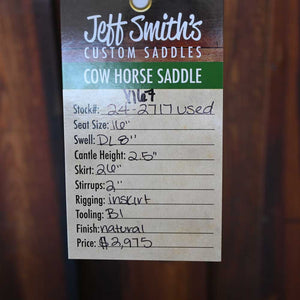 Jeff Smith's
CUSTOM SADDLES
COW HORSE SADDLE
1767
Stock#: 24-2717 used
Seat Size: 16"
Swell: DL 8"
Cantle Height: 2.5"
Skirt: 26"
Stirrups: 2"
Rigging: inskirt
Tooling: B1
Finish: natural
Price: $2,975